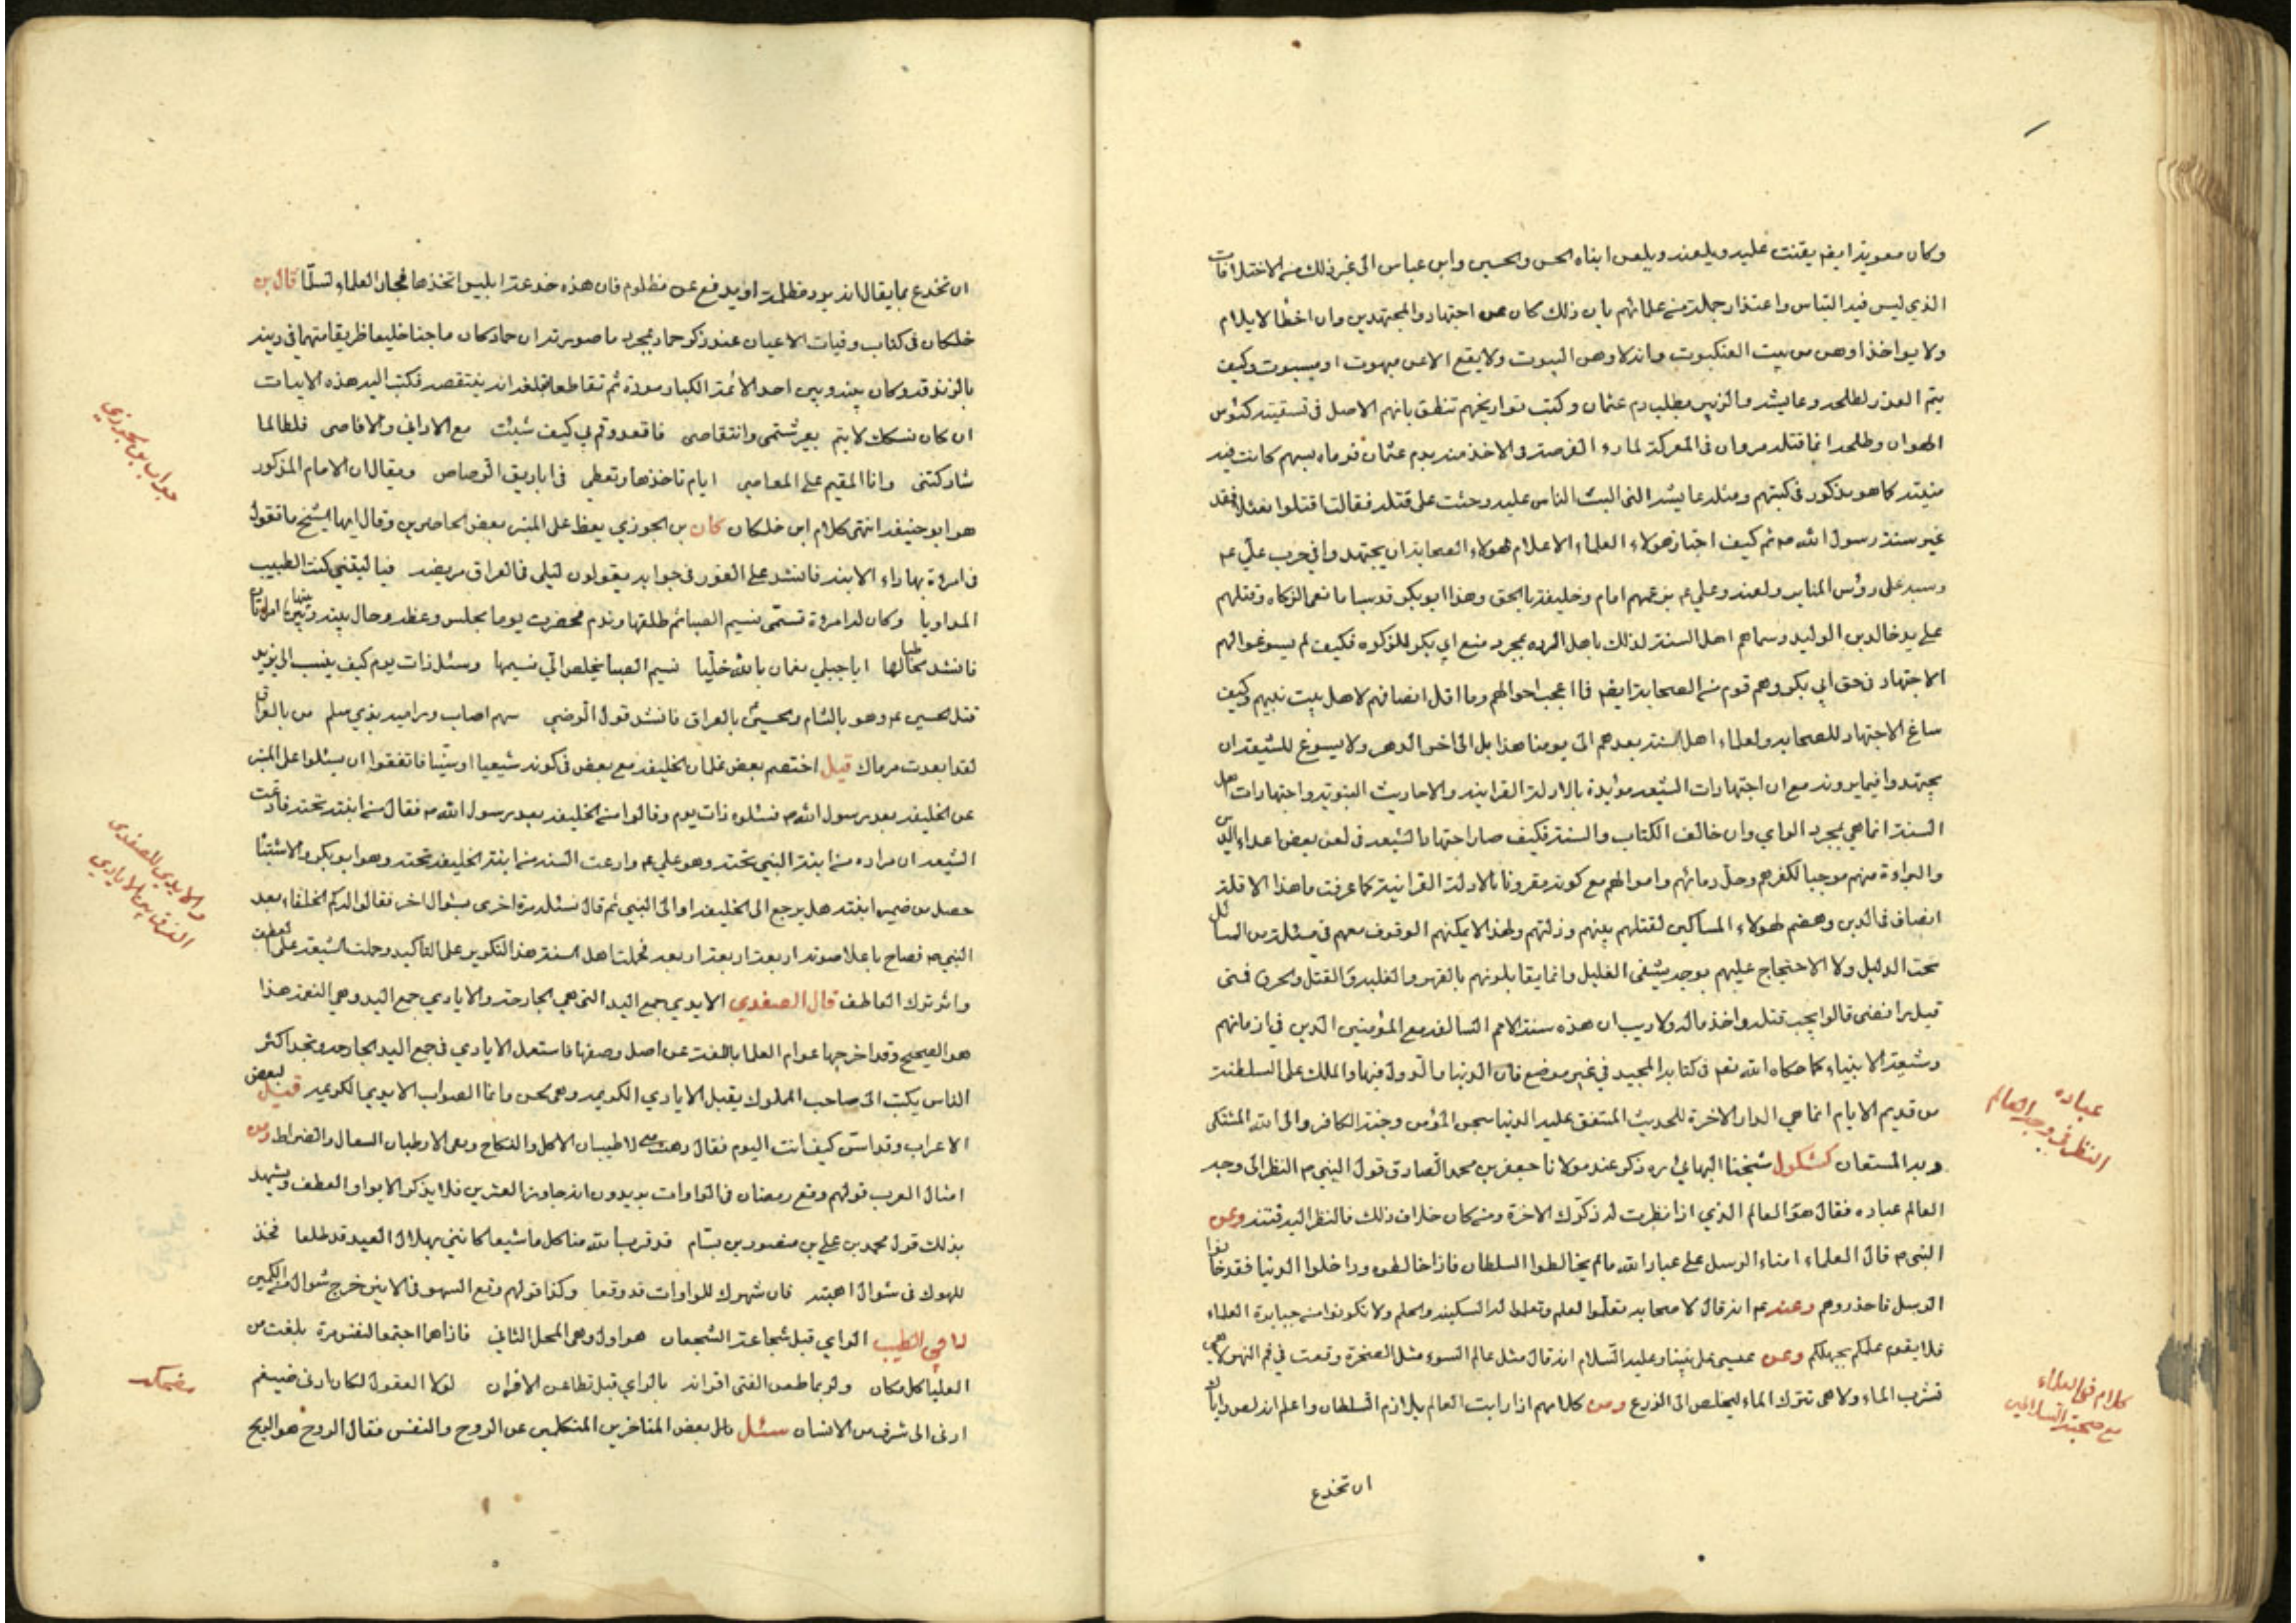 وكان معوية ايضا يقنت عليه ويلعنه ويلعن ابناه الحسن والحسين وابن عباس الى غير ذلك من الاختلافات
الذي ليس فيه التباس واعتذار جملة من علمائهم بان ذلك كان عن اجتهاد والمجتهد ين وان اخطأ لا يلام
ولا يواخذ اوهن من بيت العنكبوت وانه لاوهن البيوت ولا يقع الا عن مبهوت او مسبوت وكيف
يتم العذر لطلحه وعايشه والزبير بطلب دم عثمان وكتب تواريخهم تنطق بانهم الاصل في تسقيته كئوس
الهوان وطلحه انما قتله مروان في المعركة لما رءا الفرصة في الاخذ منه بدم عثمان فرماه بسهم كانت فيه
منيته كما هو مذكور في كتبهم ومثله عايشه التى البت الناس عليه وحثت على قتله فقالت اقتلوا نعثلا فقد
غير سنة رسول الله ص ثم كيف اجتاز هولاء العلماء الاعلام لهولاء الصحابة ان يجتهدوا في حرب علي ع
وسبه على رؤس المنابر ولعنه وعلي ع بزعمهم امام وخليفة بالحق وهذا ابو بكر قد سبا مانعى الزكاه وقتلهم
على يد خالد بن الوليد وسماهم اهل السنة لذلك باهل الرده بمجرد منع ابي بكر للزكوه فكيف لم يسوغوا لهم
الاجتهاد في حق ابي بكر وهم قوم من الصحابة ايضا فما اعجب احوالهم وما اقل انصافهم لاهل بيت نبيهم وكيف
ساغ الاجتهاد للصحابه ولعلماء اهل السنة بعدهم الى يومنا هذا بل الى اخر الدهر ولا يسوغ للشيعه ان
يجتهدوا فيما يرونه مع ان اجتهادات الشيعه مؤيدة بالادلة القرانيه والاحاديث النبوية واجتهادات اهل
السنة انما هي بمجرد الراي وان خالف الكتاب والسنة فكيف صار اجتهاد الشيعه في لعن بعض اعداء الدين
والبراءة منهم موجبا لكفرهم وحل دمائهم واموالهم مع كونه مقرونا بالادلة القرانية كما عرفت ما هذا الا قلة
انصاف في الدين وهضم لهولاء المساكين لقتلهم بينهم وذلتهم ولهذا لا يمكنهم الوقوف معهم في مسئلة من المسائل
تحت الدليل ولا الاحتجاج عليهم بوجه يشفى الغليل وانما يقابلونهم بالقهر والغلبه والقتل والحرق فمتى
قيل رافضى قالوا يجب قتله واخذ ماله ولا ريب ان هذه سنة الامم السالفه مع المؤمنين الذين في ازمانهم
وشيعة الانبياء كما حكاه الله تعالى في كتابه المجيد في غير موضع فان الدنيا والدول فيها والملك على السلطنة
من قديم الايام انما هي الدار الاخرة للحديث المتفق عليه الدنيا سجن المؤمن وجنة الكافر والى الله المشتكى
وبه المستعان كشكول شيخنا البهائي ره ذكر عند مولانا جعفر بن محمد الصادق قول النبي ص النظر الى وجه
العالم عباده فقال هو العالم الذي اذا نظرت له ذكّرك الاخرة ومن كان خلاف ذلك فالنظر اليه فتنه وعن
النبي ص قال العلماء امناء الرسل على عباد الله ما لم يخالطوا السلطان فاذا خالطوه وداخلوا الدنيا فقد خانوا
الرسل فاحذروهم وعنه ع انه قال لاصحابه تعلموا العلم وتعلموا له السكينه والحلم ولا تكونوا من جبابرة العلماء
فلا يقوم علمكم بجهلكم وعن عيسى على نبينا وعليه السلام انه قال مثل عالم السوء مثل الصخرة وقعت في فم النهر لا هي
تشرب الماء ولا هى تترك الماء ليخلص الى الزرع ومن كلامهم اذا رايت العالم يلازم السلطان واعلم انه لص واياك
ان تخدع
عباده
النظر في وجه العالم
كلام في العلماء
مع صحبة السلاطين
ان تخدع بما يقال انه يرد مظلمة او يدفع عن مظلوم فان هذه خدعة ابليس اتخذها فجار العلماء سلّما قال بن
خلكان في كتاب وفيات الاعيان عند ذكر حماد عجرد ما صورته ان حماد كان ماجنا خليعا ظريفا متهما في دينه
بالزندقه وكان بينه وبين احد الائمة الكبار مودة ثم تقاطعا فبلغه انه ينتقصه فكتب اليه هذه الابيات
ان كان نسكك لا يتم بغير شتمى وانتقاصى فاقعد وقم بي كيف شئت مع الاداني والاقاصى فلطالما
شاركتنى وانا المقيم على المعاصي ايام تاخذها وتعطي في اباريق الرصاص ويقال ان الامام المذكور
هو ابو حنيفه انتهى كلام ابن خلكان كان بن الجوزي يعظ على المنبر بعض الحاضرين وقال ايها الشيخ ما تقول
في امرءة بها داء الابنه فانشد على الفور في جوابه يقولون ليلى في العراق مريضه فيا ليتنى كنت الطبيب
المداويا وكان له امرءة تسمّى نسيم الصبا ثم طلقها وندم فحضرت يوما مجلس وعظه وحال بينه وبينها امراتان
فانشد مخاطبا لها ايا جبلي نعمان بالله خلّيا نسيم الصبا يخلص الي نسيمها وسئل ذات يوم كيف ينسب الى يزيد
قتل الحسين ع وهو بالشام والحسين بالعراق فانشد قول الرضي سهم اصاب وراميه بذي سلم من بالعراق
لقد ابعدت مرماك قيل اختصم بعض غلمان الخليفه مع بعض في كونه شيعيا او سنّيا فاتفقوا ان يسئلوا على المنبر
عن الخليفه بعد رسول الله ص فسئلوه ذات يوم وقالوا من الخليفه بعد رسول الله ص فقال من ابنته تحته فادعت
الشيعه ان مراده من ابنة النبي تحته وهو علي ع وادعت السنه من ابنة الخليفه تحته وهو ابو بكر والاشتباه
حصل من ضمير ابنته هل يرجع الى الخليفه او الى النبي ثم قال نسئله مرة اخرى بسؤال اخر فقالوا له كم الخلفاء بعد
النبي ص فصاح باعلا صوته اربعة اربعة اربعه فحملت اهل السنة هذا التكرير على التاكيد وحملت الشيعه على العطف
وانه ترك العاطف قال الصفدي الايدي جمع اليد التى هي الجارحة والايادي جمع اليد وهي النعمة هذا
هو الصحيح وقد اخرجها عوام العلما باللغة عن اصل وضعها فاستعمل الايادي في جمع اليد الجارحه وتجد اكثر
الناس يكتب الى صاحب المملوك يقبل الايادي الكريمه وهو لحن وانما الصواب الايدي الكريمه قيل لبعض
الاعراب وقد اسنّ كيف انت اليوم فقال ذهب منى الاطيبان الاكل والنكاح وبقى الارطبان السعال والضراط ومن
امثال العرب قولهم وقع رمضان في الواوات يريدون انه جاوز العشرين فلا يذكر الا بواو العطف ويشهد
بذلك قول محمد بن علي بن منصور بن بسّام قد قرب الله منا كل ما شسعا كانني بهلال العيد قد طلعا فخذ
للهوك في شوال اهبته فان شهرك للواوات قد وقعا وكذا قولهم وقع السهم في الانين خرج شوال من الكمين
لابي الطيب الراي قبل شجاعة الشجعان هو اول وهى المحل الثاني فاذا هما اجتمعا لنفس مرة بلغت من
العليا كل مكان ولربما طعن الفتى اقرانه بالراي قبل تطاعن الاقران لولا العقول لكان ادنى ضيغم
ادنى الى شرف من الانسان سئل بعض المتاخرين المتكلمين عن الروح والنفس فقال الروح هو الريح
جواب بن الجوزي
والايدي للصفدي
الفرق بين الايادي
مضحكه